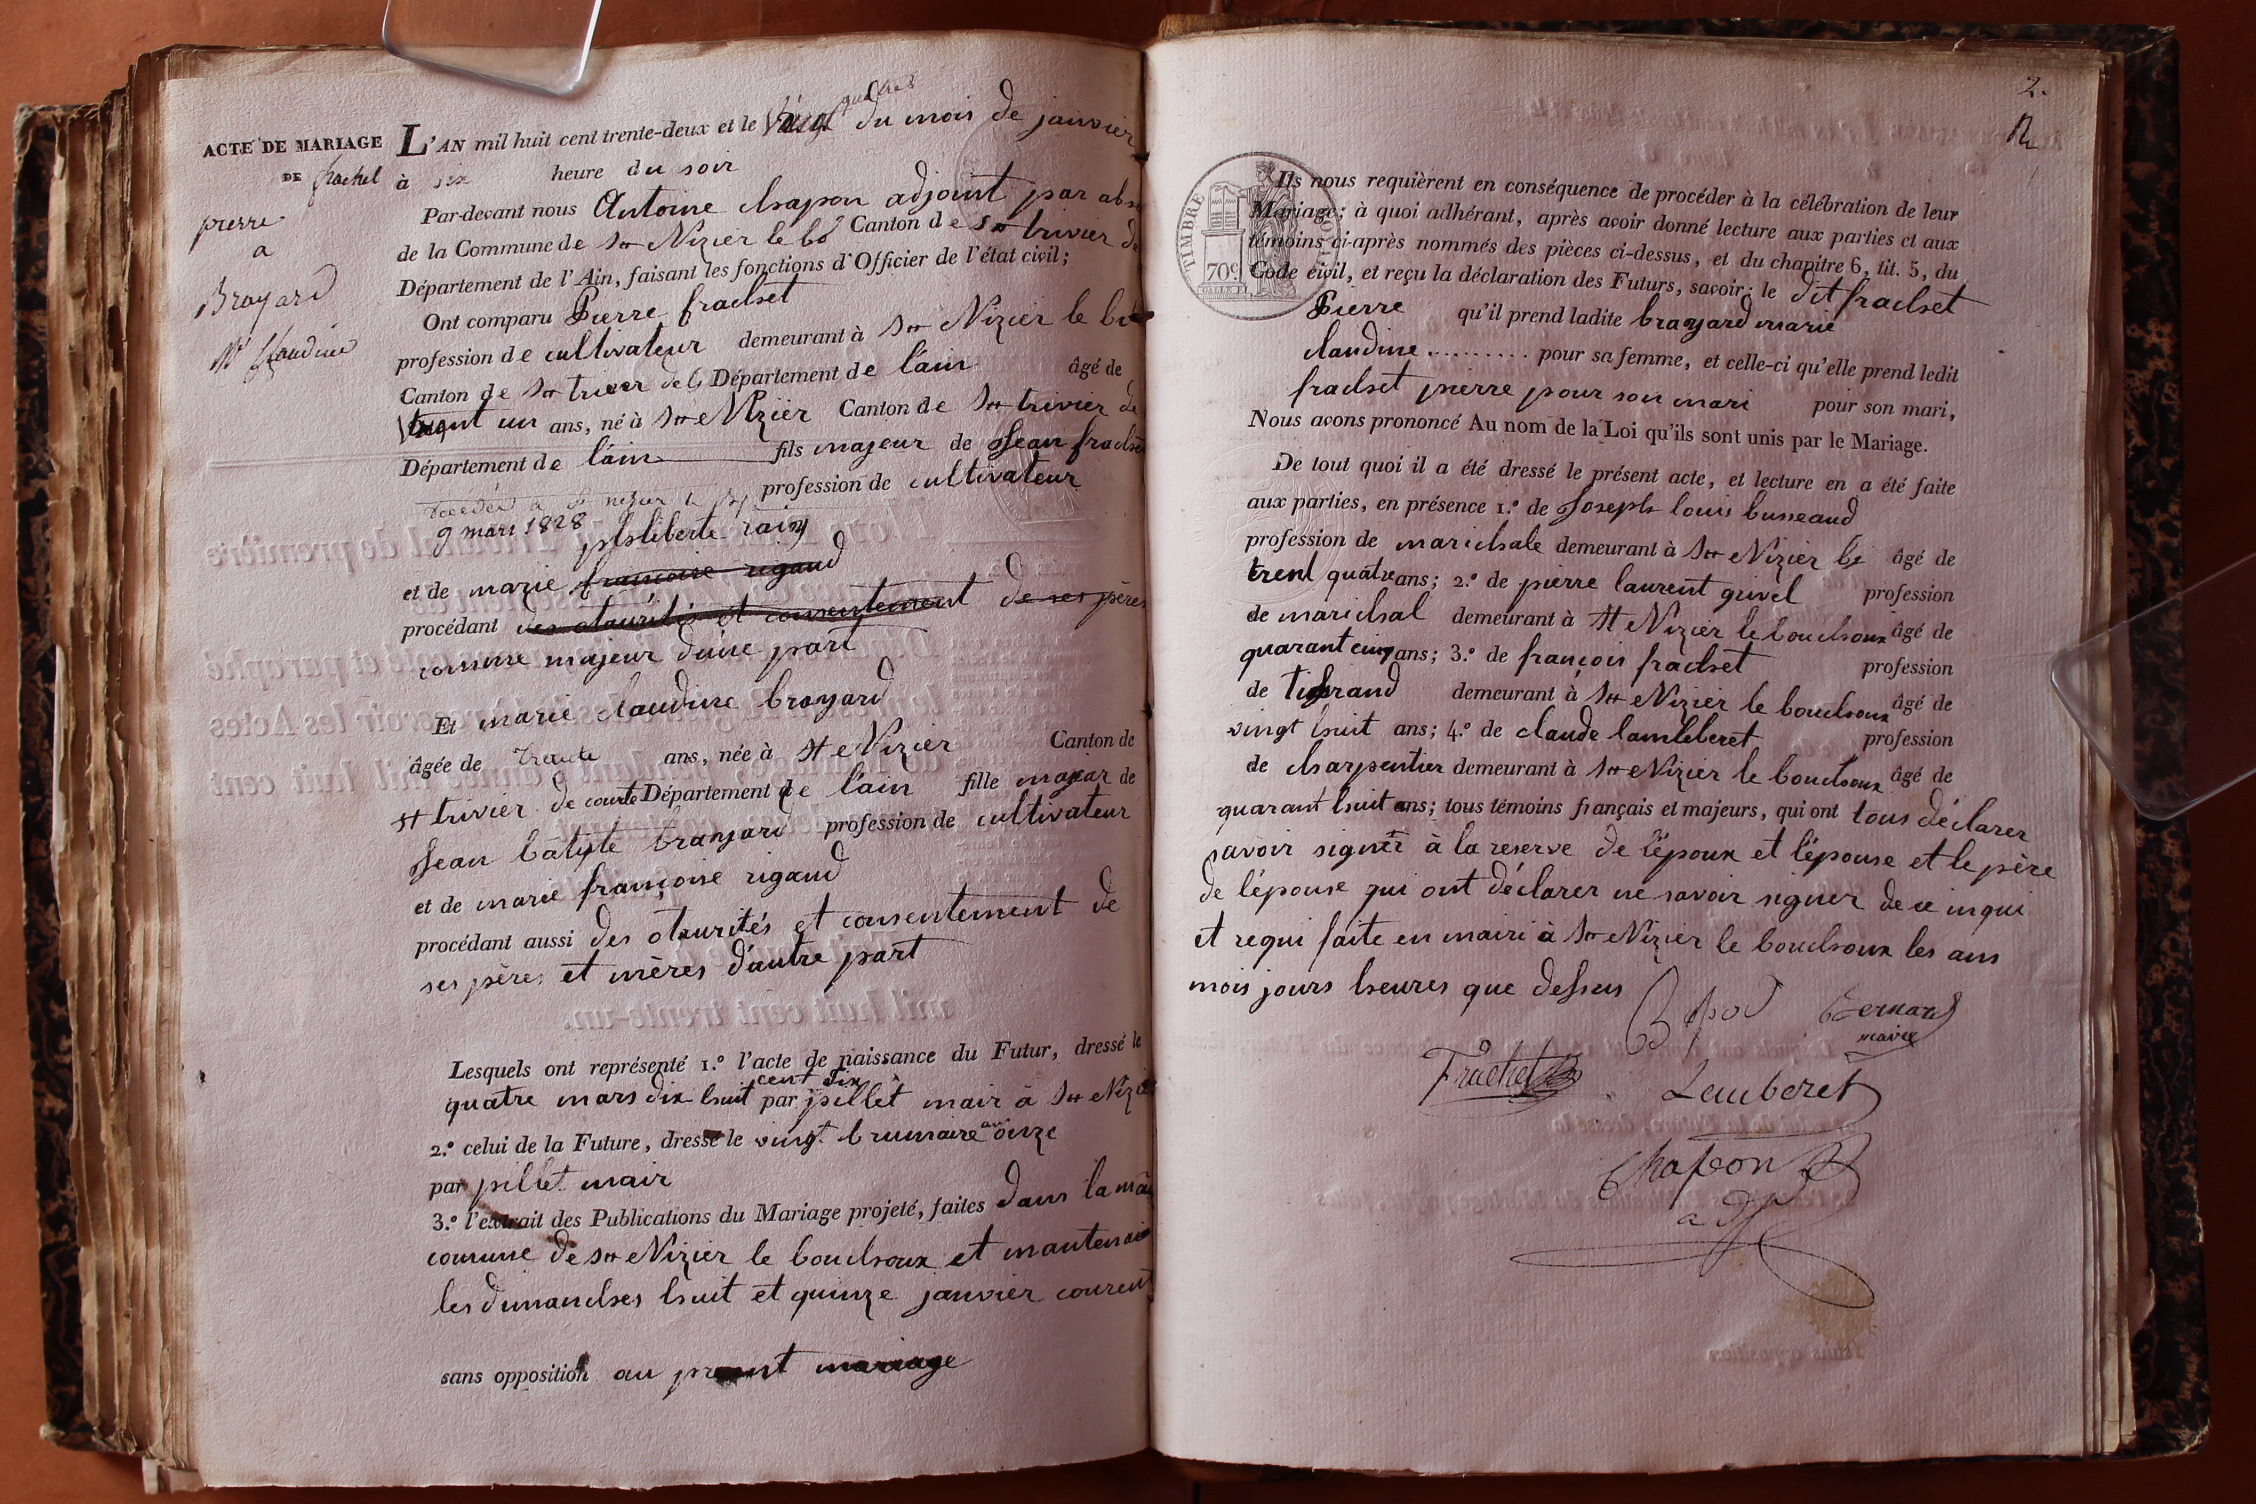 ACTE DE MARIAGE
DE frachet
pierre
a
Brayard
Me Claudine
L'AN mil huit cent trente-deux et le vingt quatres du mois de janvier
à six heure du soir
Par-devant nous Antoine chapon adjoint par abs
de la Commune de St Nizier le bo Canton de St trivier de
Département de l'Ain, faisant les fonctions d'Officier de l'état civil;
Ont comparu Pierre frachet
profession de cultivateur demeurant à St Nizier le bo
Canton de St trivier de Département de l'ain âgé de
vingt un ans, né à St Nizier Canton de St trivier de
Département de l'ain fils majeur de Jean frachet
profession de cultivateur
décédé à St nizier le
9 mars 1828
philiberte
et de marie françoise rigaud
procédant des otaurités et consentement de ses pères
comme majeur d'une part
Et marie claudine brayard
âgée de trente ans, née à St Nizier Canton de
St trivier de courte Département de l'ain fille majeur de
Jean batiste brayard profession de cultivateur
et de marie françoise rigaud
procédant aussi des otaurités et consentement de
ses pères et mères d'autre part
Lesquels ont représenté 1.º l'acte de naissance du Futur, dressé le
quatre mars dix huit cent six par pillet mair à St Nizier
2.º celui de la Future, dressé le vingt brumaire an onze
par pillet mair
3.º l'extrait des Publications du Mariage projeté, faites dans la
comune de St Nizier le bouchoux et mantenai
les dimanches huit et quinze janvier courent
sans opposition au present mariage
2.
TIMBRE
70c
Ils nous requièrent en conséquence de procéder à la célébration de leur
Mariage; à quoi adhérant, après avoir donné lecture aux parties et aux
témoins ci-après nommés des pièces ci-dessus, et du chapitre 6, tit. 5, du
Code civil, et reçu la déclaration des Futurs, savoir: le dit frachet
Pierre qu'il prend ladite brayard marie
claudine ......... pour sa femme, et celle-ci qu'elle prend ledit
frachet pierre pour son mari pour son mari,
Nous avons prononcé Au nom de la Loi qu'ils sont unis par le Mariage.
De tout quoi il a été dressé le présent acte, et lecture en a été faite
aux parties, en présence 1.º de Joseph louis busseaud
profession de marichale demeurant à St Nizier le âgé de
trent quatre ans; 2.º de pierre laurent grivel profession
de marichal demeurant à St Nizier le bouchoux âgé de
quarant cinq ans; 3.º de françois frachet profession
de tisserand demeurant à St Nizier le bouchoux âgé de
vingt huit ans; 4.º de claude lamberet profession
de charpentier demeurant à St Nizier le bouchoux âgé de
quarant huit ans; tous témoins français et majeurs, qui ont tous déclarer
savoir signer à la reserve de l'époux et l'épouse et le père
de l'épouse qui ont déclarer ne savoir signer de ce inqui
et requi faite en mairi à St Nizier le bouchoux les ans
mois jours heures que dessus
Bernard
maire
Frachet
Lamberet
Chapon
adj